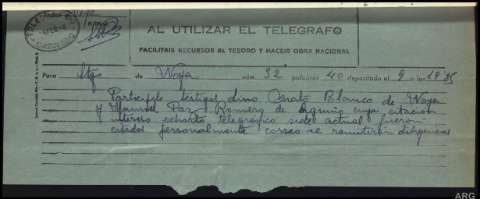 AL UTILIZAR EL TELEGRAFO
FACILITAIS RECURSOS AL TESORO Y HACEIS OBRA NACIONAL
Para Stgo de Noya núm. 32 palabras 40 depositado el 9 a las 19'35
Participole testigos Lino Blanco de Noya
y Manuel Paz Romero de cuya citación
interesa exhorto telegráfico siete actual fueron
citados personalmente correo se remitirán diligencias
ARG